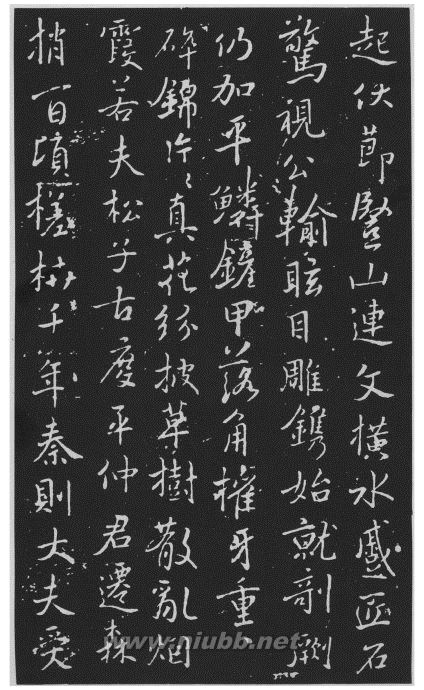 起伏節豎山連文橫水蹙匠石
驚視公輸眩目雕鐫始就剞劂
仍加平鱗鏟甲落角摧牙重〻
碎錦片〻真花紛披草樹散亂烟
霞若夫松子古度平仲君遷森
捎百頃槎枿千年秦則大夫受
www.niubb.net